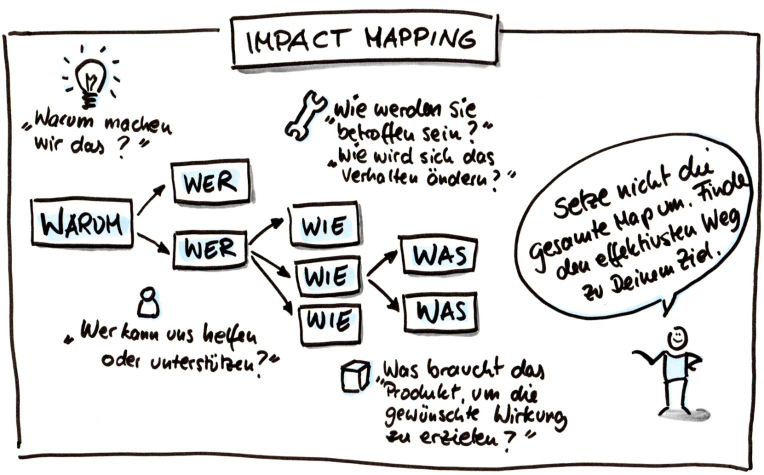 IMPACT MAPPING
„Warum machen
wir das?"
„Wie werden sie
betroffen sein?"
„Wie wird sich das
Verhalten ändern?"
WARUM
WER
WER
WIE
WIE
WIE
WAS
WAS
„Wer kann uns helfen
oder unterstützen?"
„Was braucht das
Produkt, um die
gewünschte Wirkung
zu erzielen?"
Setze nicht die
gesamte Map um. Finde
den effektivsten Weg
zu Deinem Ziel.